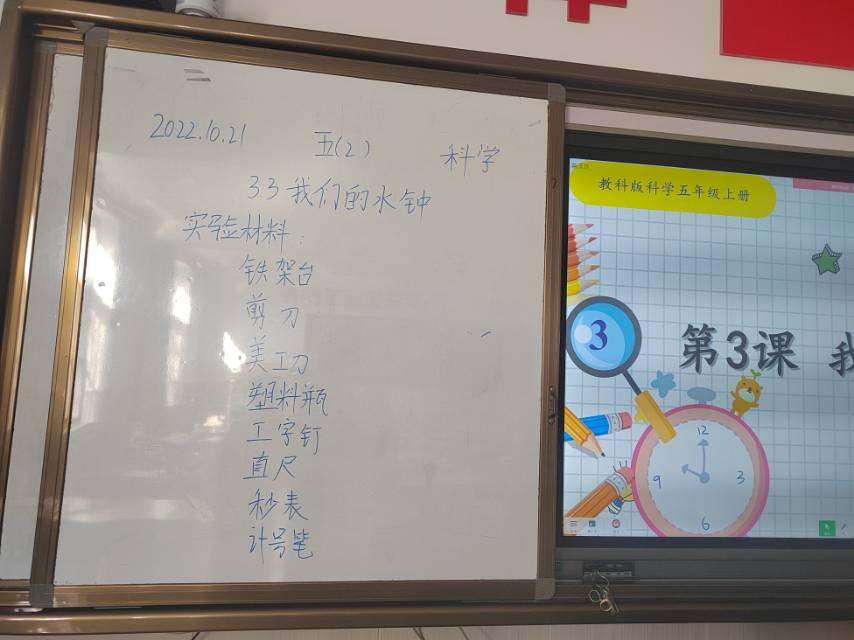 2022.10.21 五(2) 科学
3.3 我们的水钟
实验材料：
铁架台
剪刀
美工刀
塑料瓶
工字钉
直尺
秒表
计号笔
教科版科学五年级上册
3
第3课 我
12
9 3
6